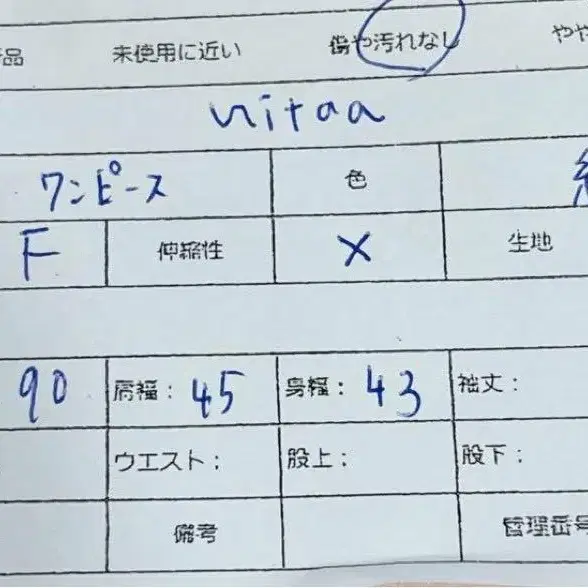 品 未使用に近い 傷や汚れなし やや
nitaa
ワンピース 色
F 伸縮性 × 生地
90 肩幅: 45 身幅: 43 袖丈:
ウエスト: 股上: 股下:
備考 管理番号